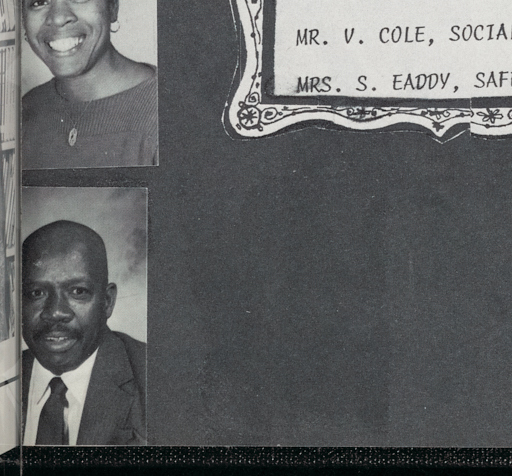 MR. V. COLE, SOCIAL
MRS. S. EADDY, SAF